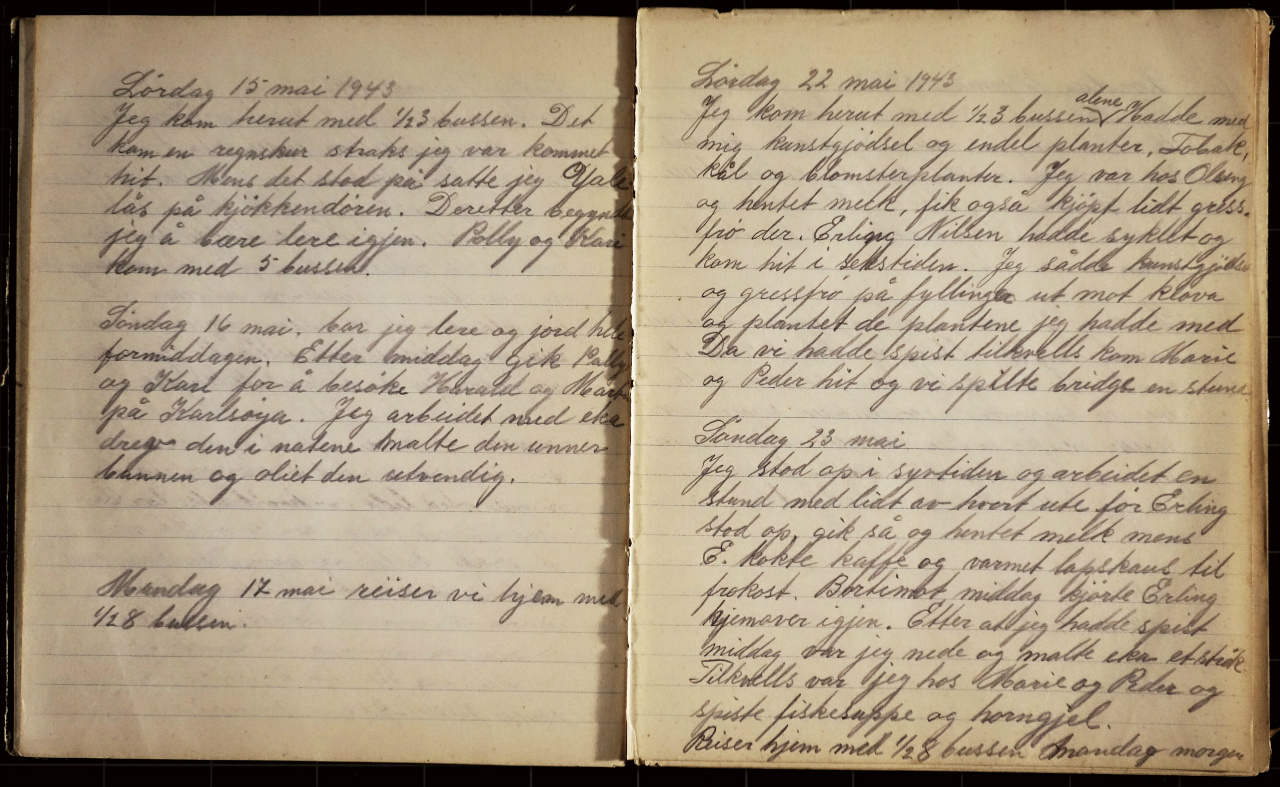 Lørdag 15 mai 1943
Jeg kom herut med ½3 bussen. Det
kom en regnskur straks jeg var kommet
hit. Mens det stod på satte jeg Yale
lås på kjøkkendøren. Deretter begyndte
jeg å bære lere igjen. Polly og Kari
kom med 5 bussen.
Søndag 16 mai. bar jeg lere og jord hele
formiddagen. Etter middag gik Polly
og Kari for å besøke Harald og
på Karlsøya. Jeg arbeidet med eka
drev den i natene malte den unner
bunnen og oliet den utvendig.
Mandag 17 mai reiser vi hjem med
½8 bussen.
Lørdag 22 mai 1943
Jeg kom herut med ½3 bussen alene Hadde med
mig kunstgjødsel og endel planter, Tobak,
kål og blomsterplanter. Jeg var hos Olsens
og hentet melk, fik også kjøpt lidt gress-
frø der. Erling Nilsen hadde syklet og
kom hit i sekstiden. Jeg sådde kunstgjødsel
og gressfrø på fyllinga ut mot kløva
og plantet de plantene jeg hadde med
Da vi hadde spist tilkvells kom Marie
og Peder hit og vi spilte bridge en stund
Søndag 23 mai
Jeg stod op i syvtiden og arbeidet en
stund med lidt av hvert ute før Erling
stod op, gik så og hentet melk mens
E. kokte kaffe og varmet lapskaus til
frokost. Bortimot middag kjørte Erling
hjemover igjen. Etter at jeg hadde spist
middag var jeg nede og malte eka et strøk
Tilkvells var jeg hos Marie og Peder og
spiste fiskesuppe og horngjel.
Reiser hjem med ½8 bussen mandag morgen